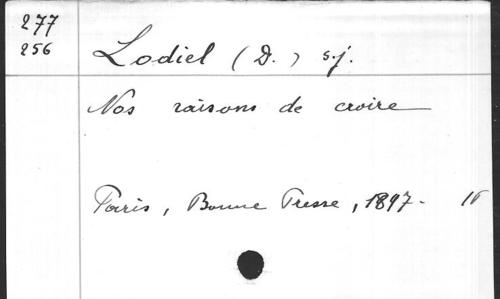 277
256
Lodiel (D.) s.j.
Nos raisons de croire
Paris, Bonne Presse, 1897.